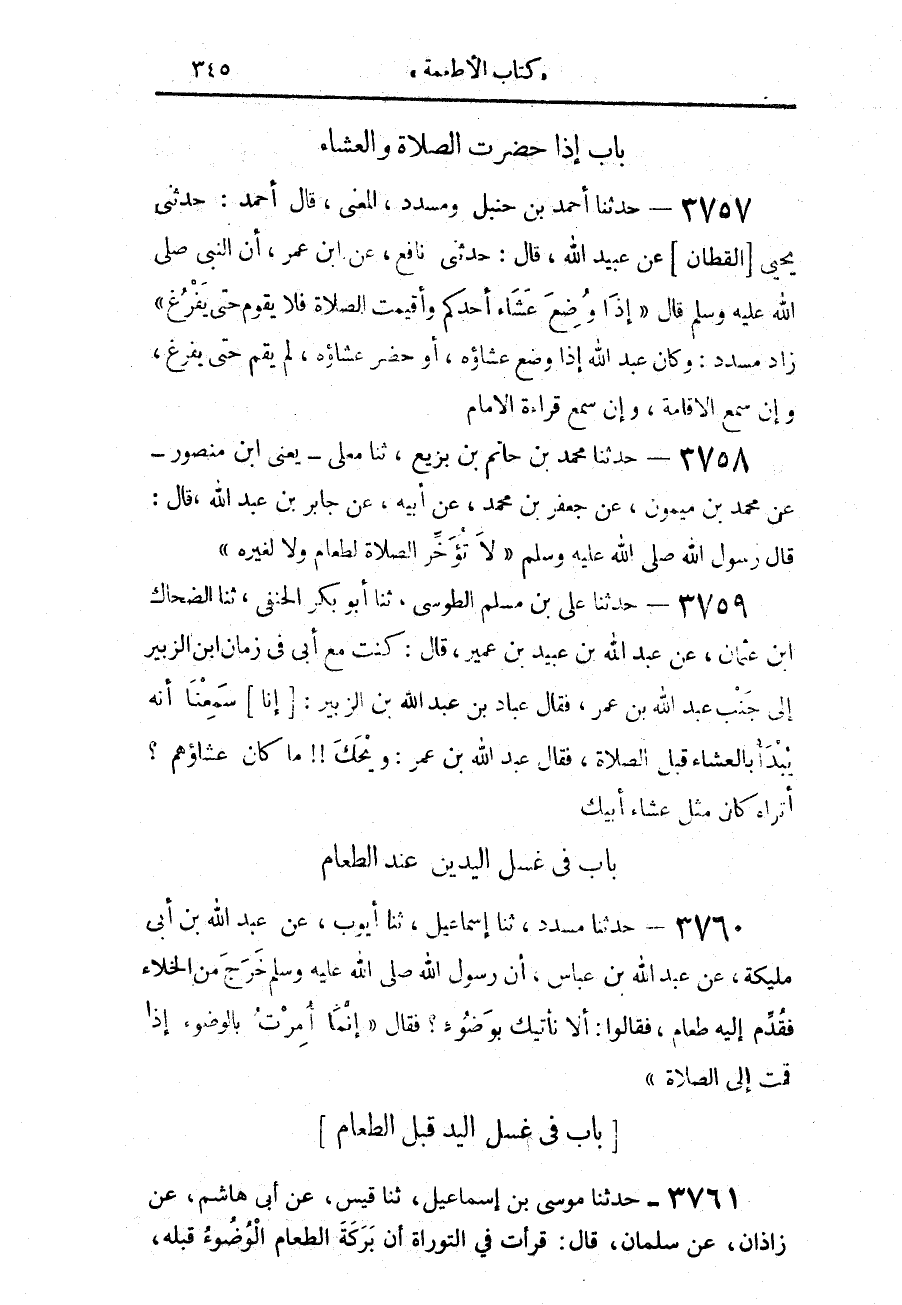 « كتاب الأطعمة » ٣٤٥
باب إذا حضرت الصلاة والعشاء
٣٧٥٧ — حدثنا أحمد بن حنبل ومسدد ، المغى ، قال أحمد : حدثنى
يحيى [القطان] عن عبيد الله ، قال : حدثنى نافع ، عن ابن عمر ، أن النبى صلى
الله عليه وسلم قال « إِذَا وُضِعَ عَشَاء أحدكم وأقيمت الصلاة فلا يقوم حتى يَفْرُغ »
زاد مسدد : وكان عبد الله إذا وضع عشاؤه ، أو حضر عشاؤه ، لم يقم حتى يفرغ ،
وإن سمع الاقامة ، وإن سمع قراءة الامام
٣٧٥٨ — حدثنا محمد بن حاتم بن بزيع ، ثنا معلى ـ يعنى ابن منصور ـ
عن محمد بن ميمون ، عن جعفر بن محمد ، عن أبيه ، عن جابر بن عبد الله ،قال :
قال رسول الله صلى الله عليه وسلم « لاَ تُؤَخَّرِ الصلاة لطعام ولا لغيره »
٣٧٥٩ — حدثنا على بن مسلم الطوسى ، ثنا أبو بكر الحنفى ، ثنا الضحاك
ابن عثمان ، عن عبد الله بن عبيد بن عمير ، قال : كنت مع أبى فى زمان ابن الزبير
إلى جَنْب عبد الله بن عمر ، فقال عباد بن عبد الله بن الزبير : [إنا] سَمِعْنَا أنه
يُبْدَأُ بالعشاء قبل الصلاة ، فقال عبد الله بن عمر : ويْحَكَ !! ما كان عشاؤهم ؟
أتراه كان مثل عشاء أبيك
باب فى غسل اليدين عند الطعام
٣٧٦٠ — حدثنا مسدد ، ثنا إسماعيل ، ثنا أيوب ، عن عبد الله بن أبى
مليكة ، عن عبد الله بن عباس ، أن رسول الله صلى الله عليه وسلم خَرَجَ من الخلاء
فقُدِّم إليه طعام ، فقالوا : ألا نأتيك بوَضُوء ؟ فقال « إنَّمَا أُمِرْتُ بالوضوء إذَا
قمت إلى الصلاة »
[ باب فى غسل اليد قبل الطعام ]
٣٧٦١ ـ حدثنا موسى بن إسماعيل، ثنا قيس، عن أبى هاشم، عن
زاذان، عن سلمان، قال: قرأت في التوراة أن بَرَكَةَ الطعام الْوُضُوءُ قبله،